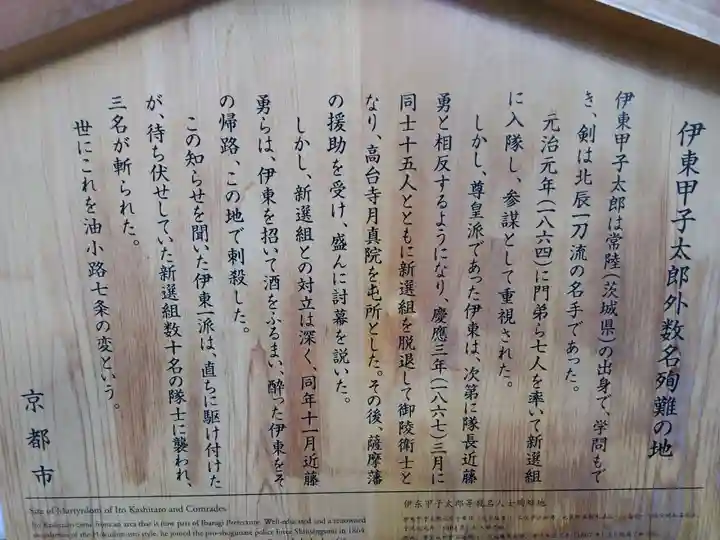 伊東甲子太郎外数名殉難の地
伊東甲子太郎は常陸(茨城県)の出身で、学問もで
き、剣は北辰一刀流の名手であった。
元治元年(一八六四)に門弟ら七人を率いて新選組
に入隊し、参謀として重視された。
しかし、尊皇派であった伊東は、次第に隊長近藤
勇と相反するようになり、慶應三年(一八六七)三月に
同士十五人とともに新選組を脱退して御陵衛士と
なり、高台寺月真院を屯所とした。その後、薩摩藩
の援助を受け、盛んに討幕を説いた。
しかし、新選組との対立は深く、同年十一月近藤
勇らは、伊東を招いて酒をふるまい、酔った伊東をそ
の帰路、この地で刺殺した。
この知らせを聞いた伊東一派は、直ちに駆け付けた
が、待ち伏せしていた新選組数十名の隊士に襲われ、
三名が斬られた。
世にこれを油小路七条の変という。
京都市
Site of Martyrdom of Ito Kashitaro and Comrades
Ito Kashitaro came from an area that is now part of Ibaragi Prefecture. Well-educated and a renowned
swordsman of the Hokushin-itto style, he joined the pro-shogunate police force Shinsengumi in 1864